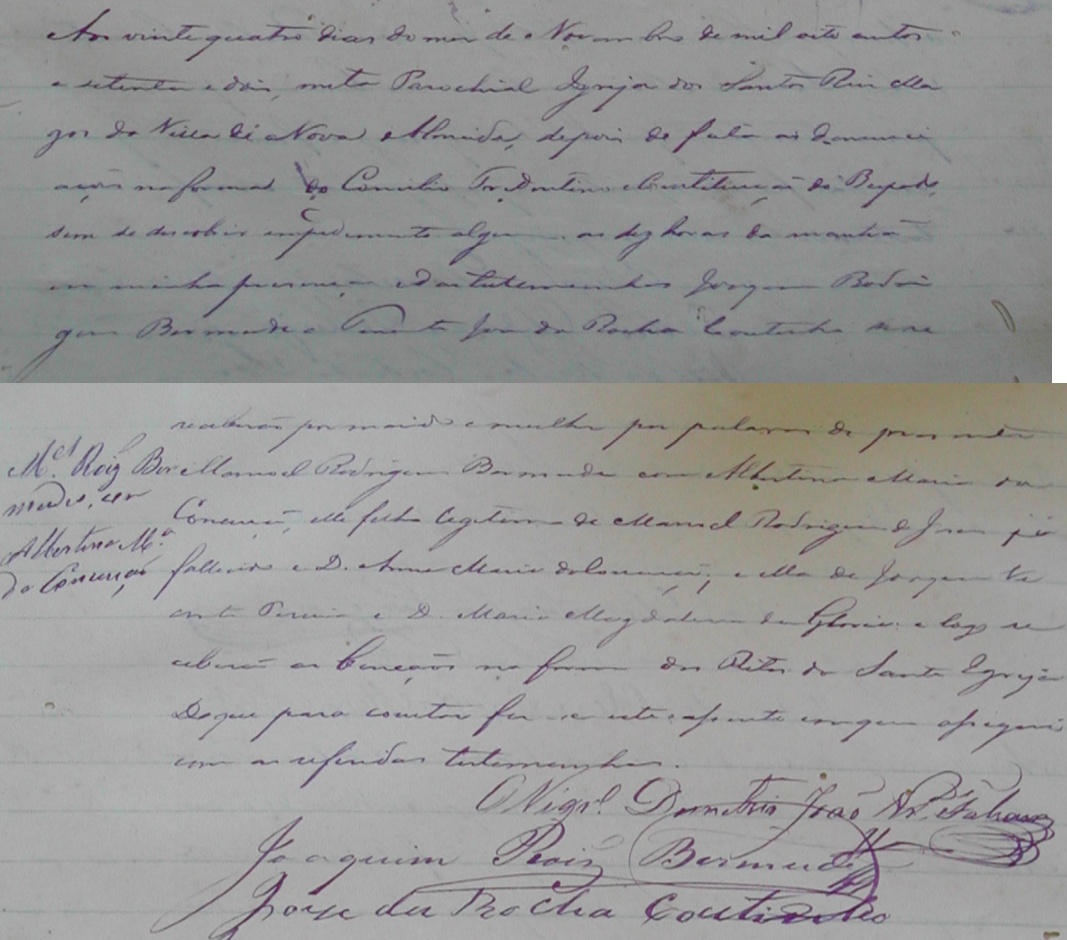 Aos vinte quatro dias do mez de Novembro de mil oito centos
e setenta e dois, nesta Parochial Igreja dos Santos Reis Ma
gos da Villa de Nova Almeida, depois de feita as denunci
ações na forma do Concilio Tridentino e Constituição do Bispado,
sem se descobrir impedimento algum as dez horas da manhã
em minha presença e das testemunhas Joaquim Rodri
gues Bermudes e Tenente José da Rocha Coutinho se re
ceberão por marido e mulher por palavras de presente
M.el Roiz Ber
mudes, com
Albertina M.a
da Conceição
Manoel Rodrigues Bermudes com Albertina Maria da
Conceição, elle filho legitimo de Manoel Rodrigues de Jesus já
fallecido e D. Anna Maria da Conceição, e ella de Joaquim
Pereira e D. Maria Magdalena da Gloria: e logo re
ceberão as bençaõs na forma dos Ritos da Santa Igreja
Do que para constar fiz este assento em que assignei
com as referidas testemunhas.
O Vigr.o Demetrio João
Joaquim Roiz Bermudes
José da Rocha Coutinho